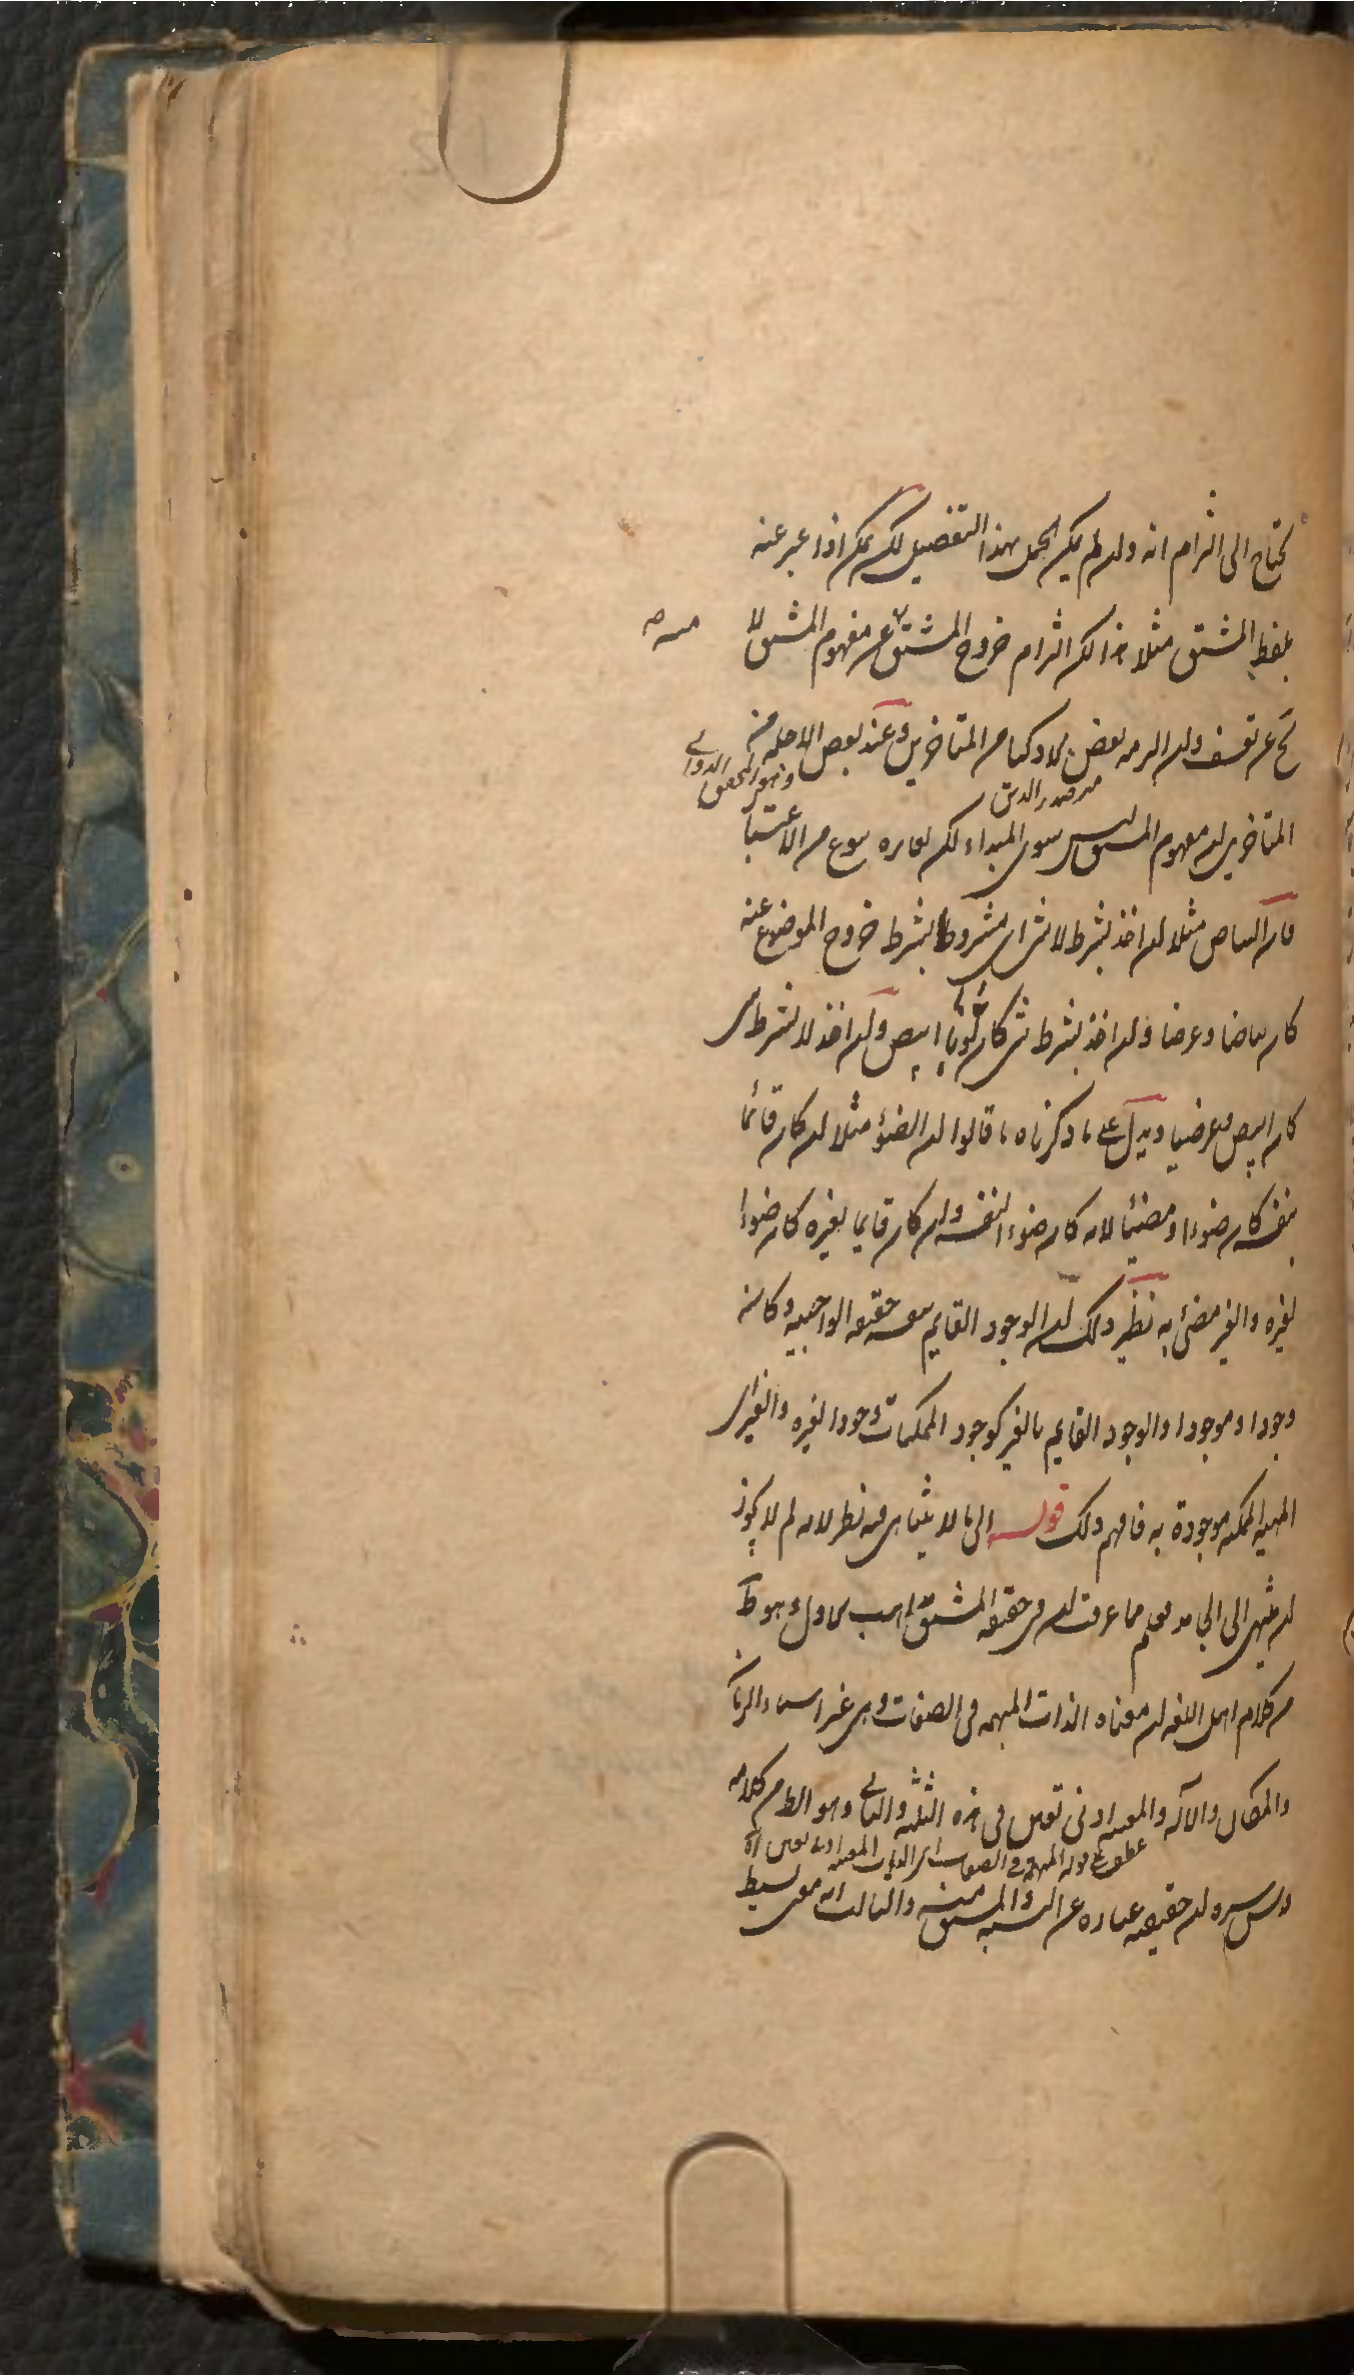 يحتاج الى التزام انه وان لم يكن الحمل بهذا التفصيل لكن يمكن اذا عبر عنه
بلفظ المشتق مثلا هذا لكن التزام خروج المشتق عن مفهوم المشتق لا
منه
يخ عن تعسف وان التزمه بعض من المتاخرين وعند بعض الاجلة من
وهو المحقق الدواني
مير صدر الدين
المتاخرين ان مفهوم المشتق ليس سوى المبداء لكن يغايره بنوع من الاعتبار
فان البياض مثلا ان اخذ بشرط لا شئ اى مشروطا بشرط خروج الموضوع عنه
كان بياضا وعرضا وان اخذ بشرط شئ كان ثوبا ابيض وان اخذ لا بشرط شئ
كان ابيض وعرضيا ويدل على ما ذكرناه ما قالوا ان الضوء مثلا ان كان قائما
بنفسه كان ضوءا ومضيئا لانه كان ضوءا لنفسه وان كان قايما بغيره كان ضوءا
لغيره والغير مضئ به نظير ذلك ان الوجود القايم بنفسه حقيقة الواجبية وكانه
وجودا وموجودا والوجود القايم بالغير كوجود الممكنات وجودا لغيره والغير اى
المهية الممكنة موجودة به فافهم ذلك قوله الى ما لا يتناهى فيه نظر لانه لم لا يجوز
ان ينتهى الى مما عرفت ان فى حقيقة المشتق مذاهب الاول وهو ظ
من كلام اهل اللغة ان معناه الذات المبهمة فى الصفات وهى غير اسماء الزمان
والمكان والآلة والمعينة ادنى تعين فى هذه الثلثة والثانى وهو الظ من كلام
عطف على قوله المبهمة فى الصفات اى الذات المعينة ادنى تعين
ان حقيقته عبارة عن النسبة والمشتق منه والثالث انه معنى بسيط